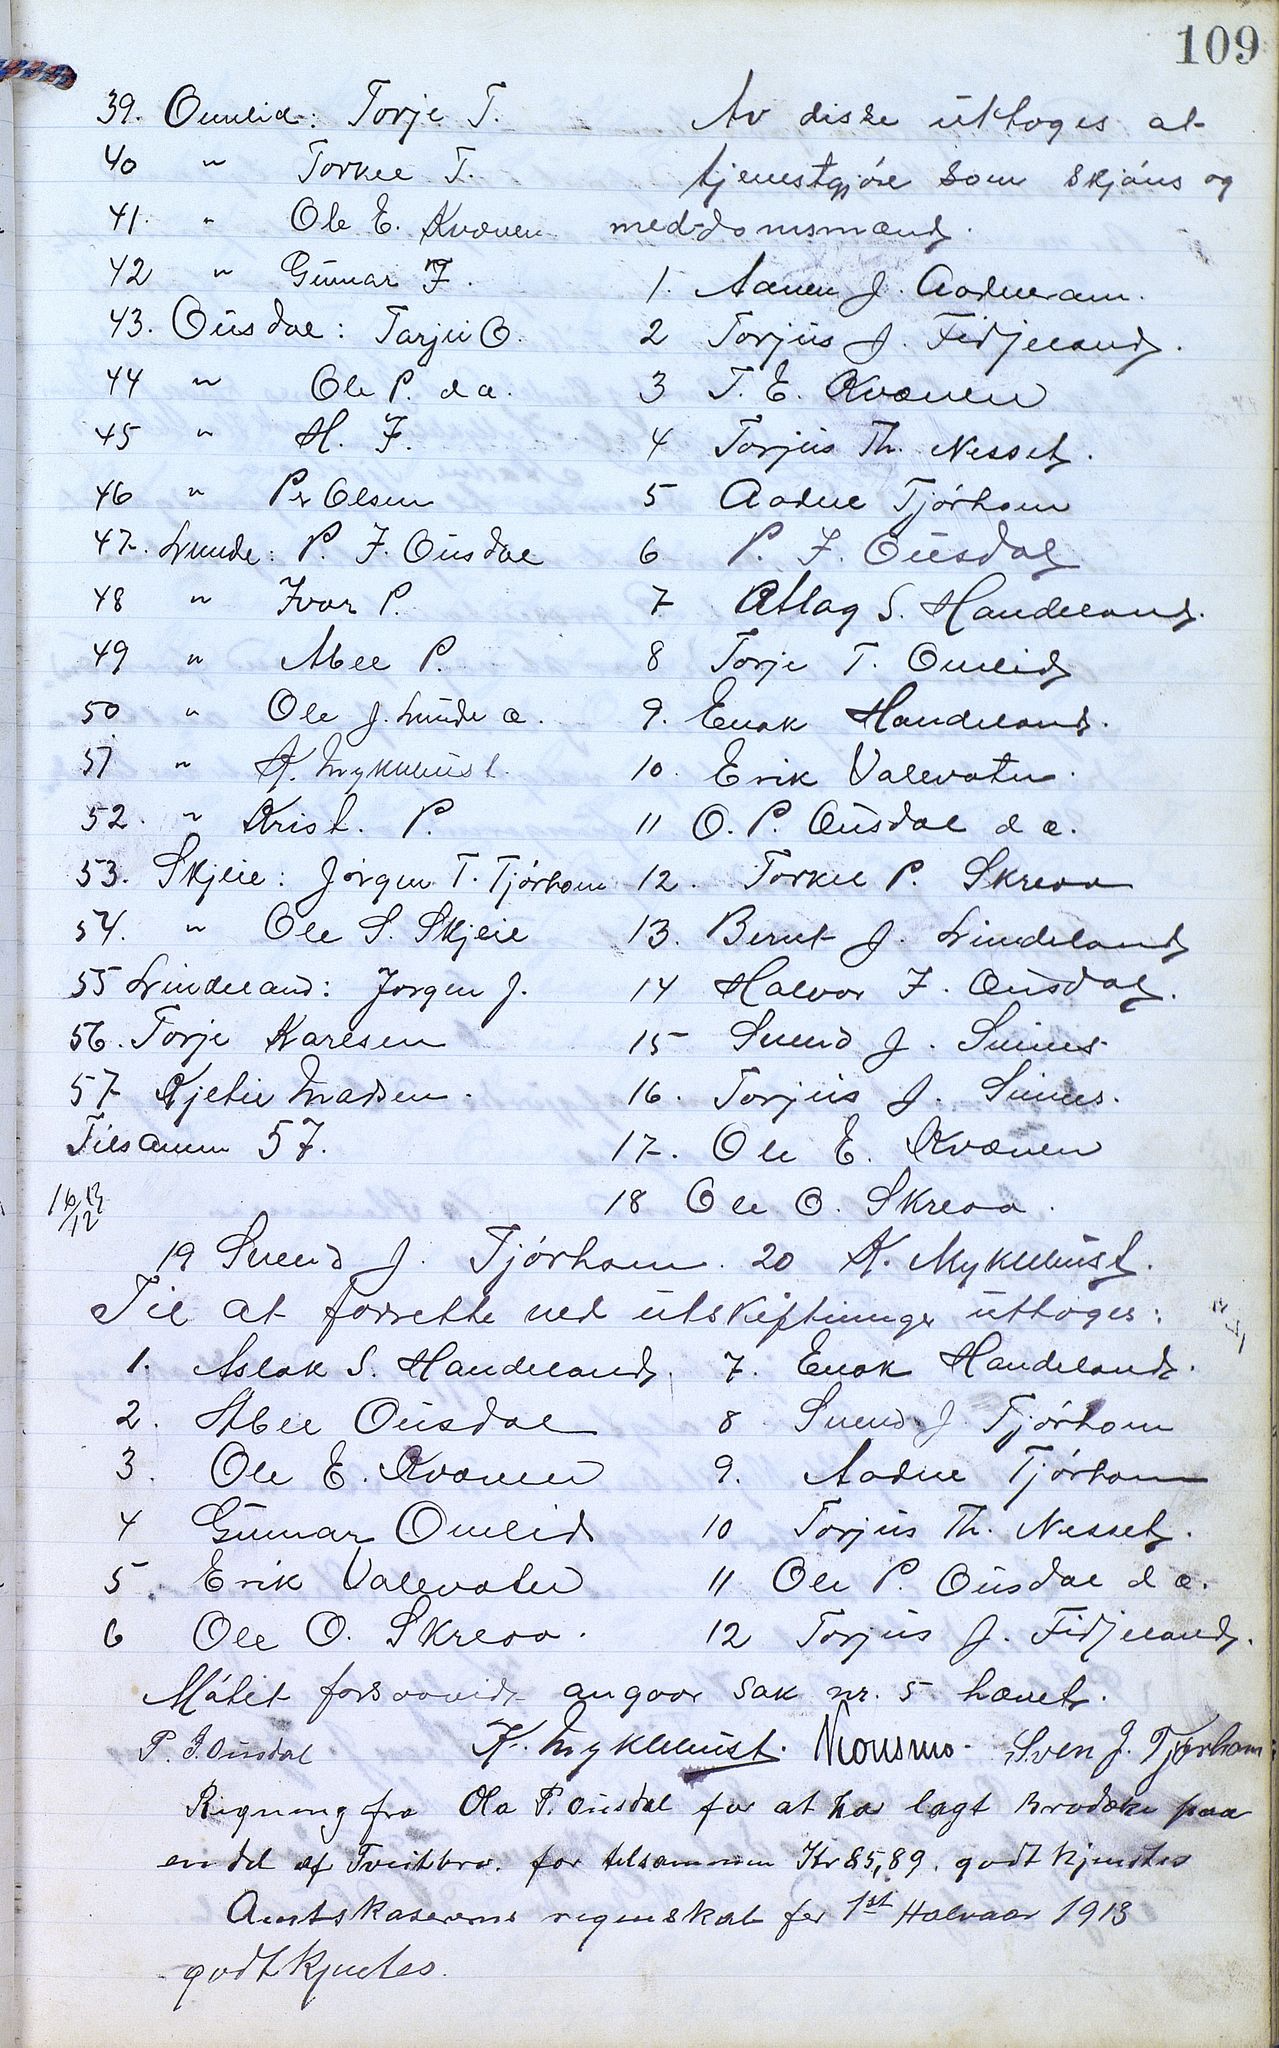 109
39. Omlid: Torje T.
40 " Torkel T.
41. " Ole E. Kvænen
42 " Gunnar F.
43. Ousdal: Tarjei O.
44 " Ole P. d æ.
45 " H. F.
46 " Pr Olsen
47. Lunde: P. F. Ousdal
48 " Ivar P.
49 " Abel P.
50 " Ole J. Lunde æ.
51 " K. Myklebust
52. " Krist. P.
53. Skjeie: Jørgen T. Tjørhom
54. " Ole S. Skjeie
55 Lindeland: Jørgen J.
56. Torje Karlsen
57 Kjetil Madsen.
Tilsamm 57.
16/12 13
Av disse uttoges at
tjenestgjøre som skjøns og
med-domsmænd.
1. Aanen J. Aadneram.
2 Torjus J. Fidjeland.
3 T. E. Kvænen
4 Torjus Th. Nesset.
5 Aadne Tjørhom
6 P. F. Ousdal
7 Atlag S. Handeland.
8 Torje T. Omlid
9. Enok Handeland.
10. Erik Valevatn.
11 O. P. Ousdal d æ.
12. Torkel P. Skreaa
13. Bernt J. Lindeland
14 Halvor F. Ousdal.
15 Svend J. Sinnes
16. Torjus J. Sinnes.
17. Ole E. Kvænen
18 Ole O. Skreaa.
19 Svend J. Tjørhom. 20 K. Myklebust.
Til at forrette ved utskiftninger uttoges:
1. Aslak S. Handeland. 7. Enok Handeland.
2. Abel Ousdal 8 Svend J Tjørhom
3. Ole E. Kvænen 9. Aadne Tjørhom
4 Gunnar Omlid 10 Torjus Th. Nesset.
5. Erik Valevatn 11 Ole P. Ousdal d æ.
6 Ole O. Skreaa. 12 Torjus J. Fidjeland.
Møtet forsaavidt angaar sak nr. 5 hævet.
P. F. Ousdal K. Myklebust. Sven J. Tjørhom
Rigning fra Ola P. Ousdal for at ha lagt Brodække paa
en del af Tveitbro. for tilsammen Kr 85,89. godtkjendtes
Amtskaserens regnskab for 1st Halvaar 1913
godtkjentes.